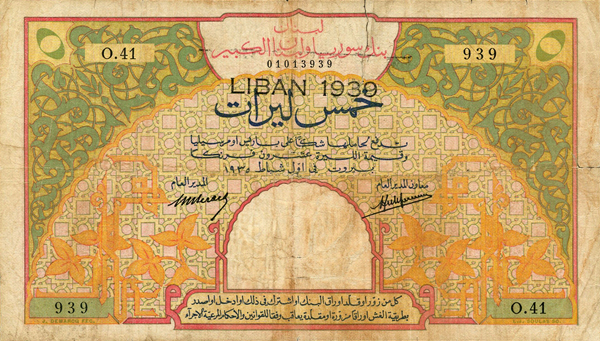 لبنان
بنك سوريا ولبنان الكبير
O.41
939
01013939
LIBAN 1939
خمس ليرات
تدفع لحاملها شكا على باريس او مرسيليا
وقيمة الليرة عشرون فرنكا
بيروت في اول شباط ١٩٣٥
المدير العام
معاون المدير العام
كل من زور او قلد اوراق البنك او اشترك في ذلك او ادخل او اصدر
بطريقة الغش اوراقا مزورة او مقلدة يعاقب وفقا للقوانين والاحكام المرعية الاجراء
939
O.41